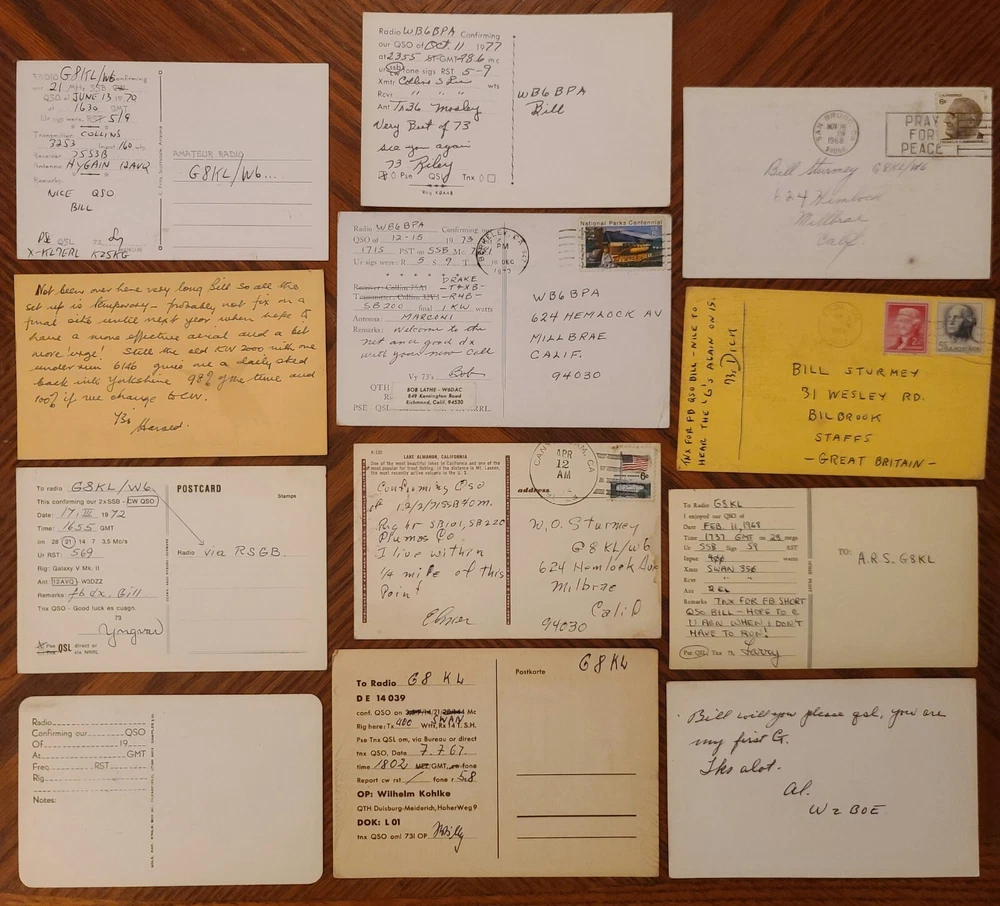 RADIO G8KL/W6 confirming
our 21 MHz SSB
QSO of JUNE 13 1970
at 1630 GMT
Ur sigs were RST 5/9
Transmitter COLLINS
32S3 input 160 watts
Receiver 75S3B
Antenna HYGAIN 12AVQ
Remarks:
NICE QSO
BILL
PSE QSL 73
X-KL7ERL K2SKG
AMATEUR RADIO
G8KL/W6...
Not been over here very long Bill so all the
set up is temporary - probably not fix on a
final site until next year when hope to
have a more effective aerial and a bit
more 'urge'! Still the old KW 2000 with one
under run 6146 gives me a daily sked
back into Yorkshire 98% of the time and
100% if we change to CW.
73s
Harold.
To radio G8KL/W6
This confirming our 2xSSB - CW QSO
Date: 17. III 1972
Time: 1655 GMT
on 28 21 14 7 3,5 Mc/s
Ur RST: 569
Rig: Galaxy V Mk. II
Ant: 12AVQ - W3DZZ
Remarks: fb dx. Bill
Tnx QSO - Good luck es cuagn.
73
Yngvar
Pse QSL direct or
Tnx via NRRL
POSTCARD
Stamps
Radio via RSGB.
Radio
Confirming our QSO
Of 19
At GMT
Freq. RST
Rig
Notes:
Radio WB6BPA Confirming
our QSO of Oct. 11 1977
at 2355 ST GMT 28.6 mc
ur ssb fone sigs RST 5-9
Xmt: Collins S Line wts
Rcvr: " " "
Ant Th3k Mosley
Very Best of 73
see you again
73 Riley
Pse QSL Tnx
WB6BPA
Bill
Radio WB6BPA Confirming our
QSO of 12-15 1973
1715 PST on SSB Mc
Ur sigs were: R 5 S 9 T
DRAKE
Receiver: Collins 75A1 -T4XB-
Transmitter: Collins 32V3 -R4B-
SB200 final 1KW watts
Antenna: MARCONI
Remarks: Welcome to the
net and good dx
with your new call
Vy 73's Bob
BOB LATHE - W6DAC
849 Kensington Road
Richmond, Calif. 94530
QTH
PSE QSL
RRL
National Parks Centennial
PM
DEC
1973
WB6BPA
624 HEMLOCK AV
MILLBRAE
CALIF.
94030
LAKE ALMANOR, CALIFORNIA
One of the most beautiful lakes in California and one of the
most popular for trout fishing. In the distance is Mt. Lassen,
the most recently active volcano in the U. S.
Confirming QSO
of 12/2/71 SSB 40m.
Rig hr SB101, SB220
Plumas Co.
I live within
1/4 mile of this
Point
Elmer
address
APR
12
AM
W.O. Sturmey
G8KL/W6
624 Hemlock Ave
Milbrae
Calif
94030
To Radio G8 KL
DE 14 039
conf. QSO on Mc
Rig here: Tx 400 SWAN Wtts, Rx 14 T. S.H.
Pse Tnx QSL om, via Bureau or direct
tnx QSO, Date 7.7.67.
time 1802 MEZ/GMT, cw-fone
Report cw rst / fone r 5.8
OP: Wilhelm Kohlke
QTH Duisburg-Meiderich, Hoher Weg 9
DOK: L 01
tnx QSO oml 73! OP Willy
Postkarte
G8KL
SAN BRUNO, CA
1968
PRAY
FOR
PEACE
6¢
Bill Sturmey G8KL/W6
624 Hemlock
Millbrae
Calif.
TNX FOR FB QSO BILL - NICE TO
HEAR THE "G'S AGAIN ON 15.
73 DICK
BILL STURMEY
31 WESLEY RD.
BILBROOK
STAFFS
- GREAT BRITAIN -
To Radio G8KL
I enjoyed our QSO of
Date FEB. 11, 1968
Time 1737 GMT on 28 megs
Ur SSB Sigs 59 RST
Input 400 watts
Xmtr SWAN 350
Rcvr " "
Ant 2 EL
Remarks TNX FOR FB SHORT
QSO BILL - HOPE TO C
U AGN WHEN I DON'T
HAVE TO RUN!
Pse QSL Tnx 73, Larry
TO: A.R.S. G8KL
Bill will you please qsl, you are
my first G.
Tks alot.
Al.
W2BOE